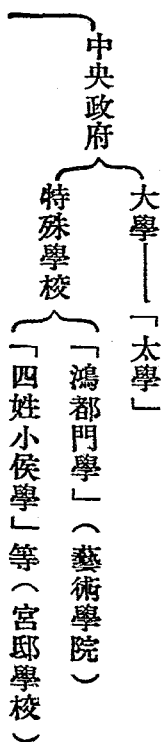 中央政府
大學——「太學」
特殊學校
「鴻都門學」(藝術學院)
「四姓小侯學」等(宮邸學校)